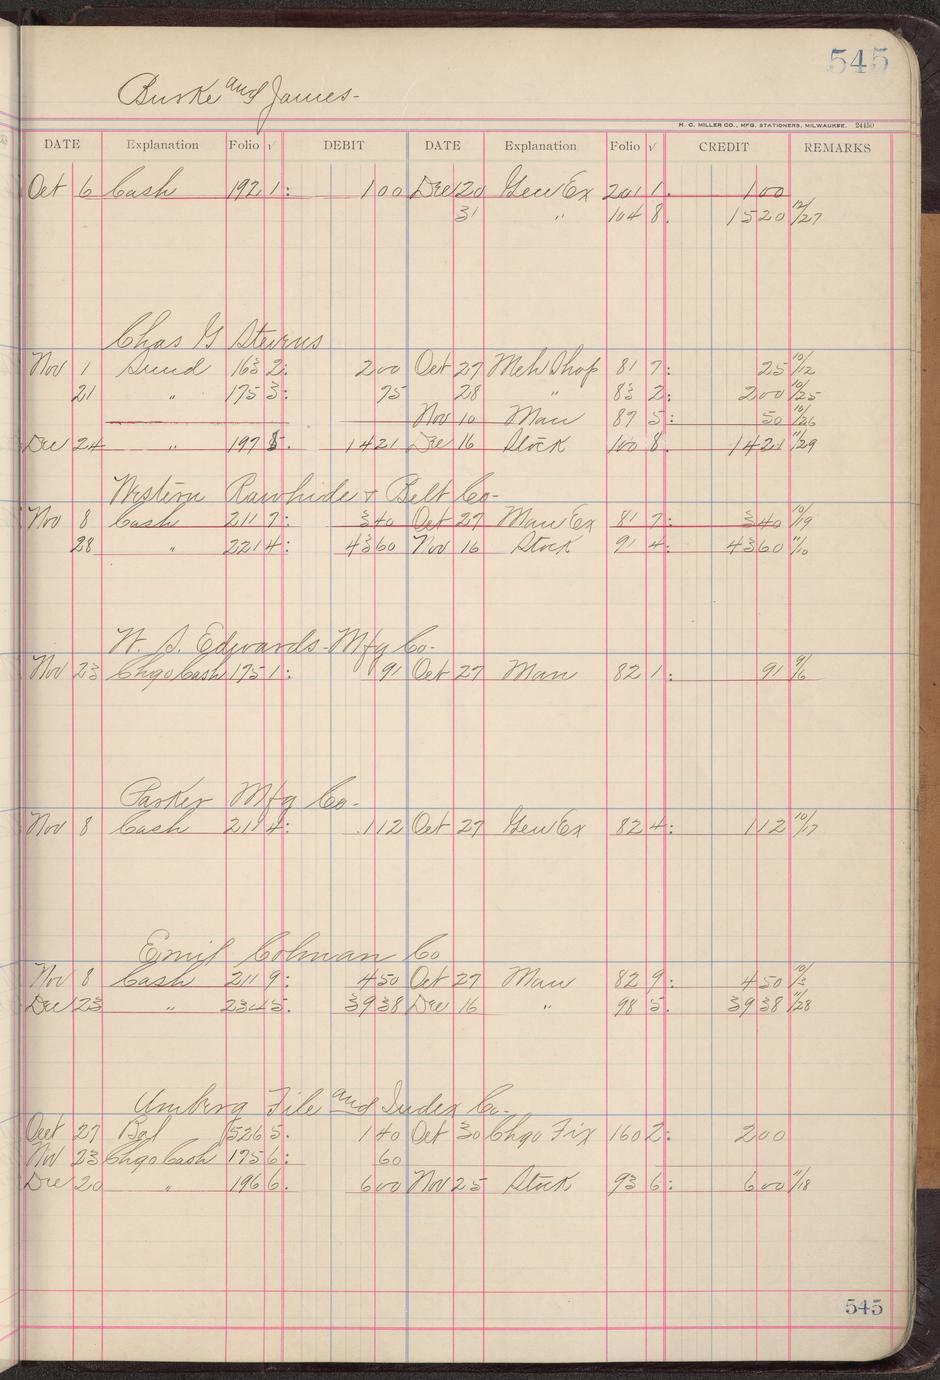 545
Burke and James-
H. C. MILLER CO., MFG. STATIONERS, MILWAUKEE. 24450
DATE Explanation Folio √ DEBIT DATE Explanation Folio √ CREDIT REMARKS
Oct 6 Cash 192 1: 100 Dec 20 Gen Ex 201 1. 100
31 " 104 8. 1520 12/27
Chas G Stevens
Nov 1 Sund 163 2: 200 Oct 27 Meh Shop 81 7: 25 10/12
21 " 175 3: 75 28 " 83 2: 200 10/25
Nov 10 Man 87 5: 50 10/26
Dec 24 " 197 8. 1421 Dec 16 Stock 100 8. 1421 11/29
Western Rawhide & Belt Co-
Nov 8 Cash 211 7: 340 Oct 27 Man Ex 81 7: 340 10/19
28 " 221 4: 4360 Nov 16 Stock 91 4: 4360 11/10
W. S. Edwards-Mfg Co-
Nov 23 Chgo Cash 175 1: 91 Oct 27 Man 82 1: 91 9/6
Parker Mfg Co-
Nov 8 Cash 211 4: 112 Oct 27 Gen Ex 82 4: 112 10/17
Emil Colman Co
Nov 8 Cash 211 9: 450 Oct 27 Man 82 9: 450
Dec 23 " 234 5. 3938 Dec 16 " 98 5. 3938 11/28
Umberg File and Index Co-
Oct 27 Bal 526 5. 140 Oct 30 Chgo Fix 160 2: 200
Nov 23 Chgo Cash 175 6: 60
Dec 20 " 196 6. 600 Nov 25 Stock 93 6: 600 11/18
545